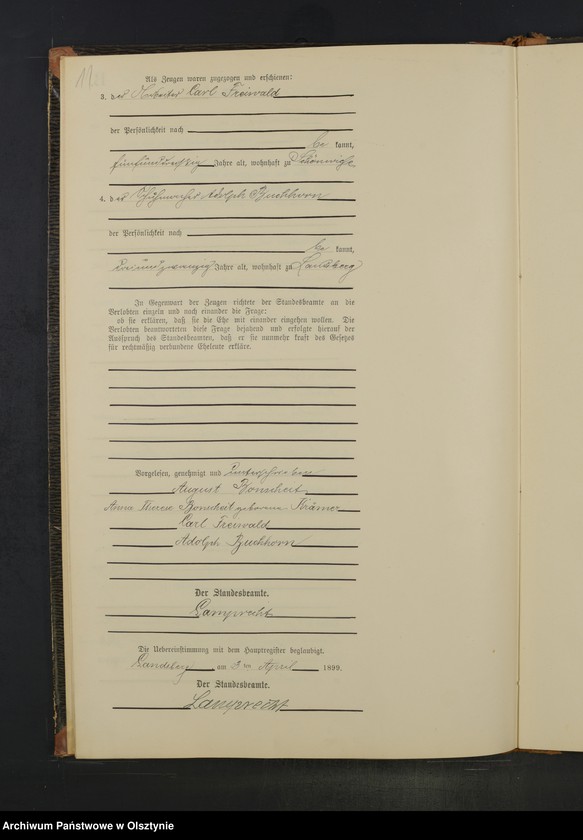 Als Zeugen waren zugezogen und erschienen:
3. der Arbeiter Carl Freiwald
der Persönlichkeit nach
be kannt,
fünfunddreißig Jahre alt, wohnhaft zu Schönwiese
4. der Schuhmacher Adolph Buchhorn
der Persönlichkeit nach
be kannt,
dreiundzwanzig Jahre alt, wohnhaft zu Landsberg
In Gegenwart der Zeugen richtete der Standesbeamte an die
Verlobten einzeln und nach einander die Frage:
ob sie erklären, daß sie die Ehe mit einander eingehen wollen. Die
Verlobten beantworteten diese Frage bejahend und erfolgte hierauf der
Ausspruch des Standesbeamten, daß er sie nunmehr kraft des Gesetzes
für rechtmäßig verbundene Eheleute erkläre.
Vorgelesen, genehmigt und unterschrieben
August Bonscheit
Anna Therese Bonscheit geborene Krämer
Carl Freiwald
Adolph Buchhorn
Der Standesbeamte.
Lamprecht
Die Uebereinstimmung mit dem Hauptregister beglaubigt.
Landsberg am April 1899.
Der Standesbeamte.
Lamprecht
Archiwum Państwowe w Olsztynie